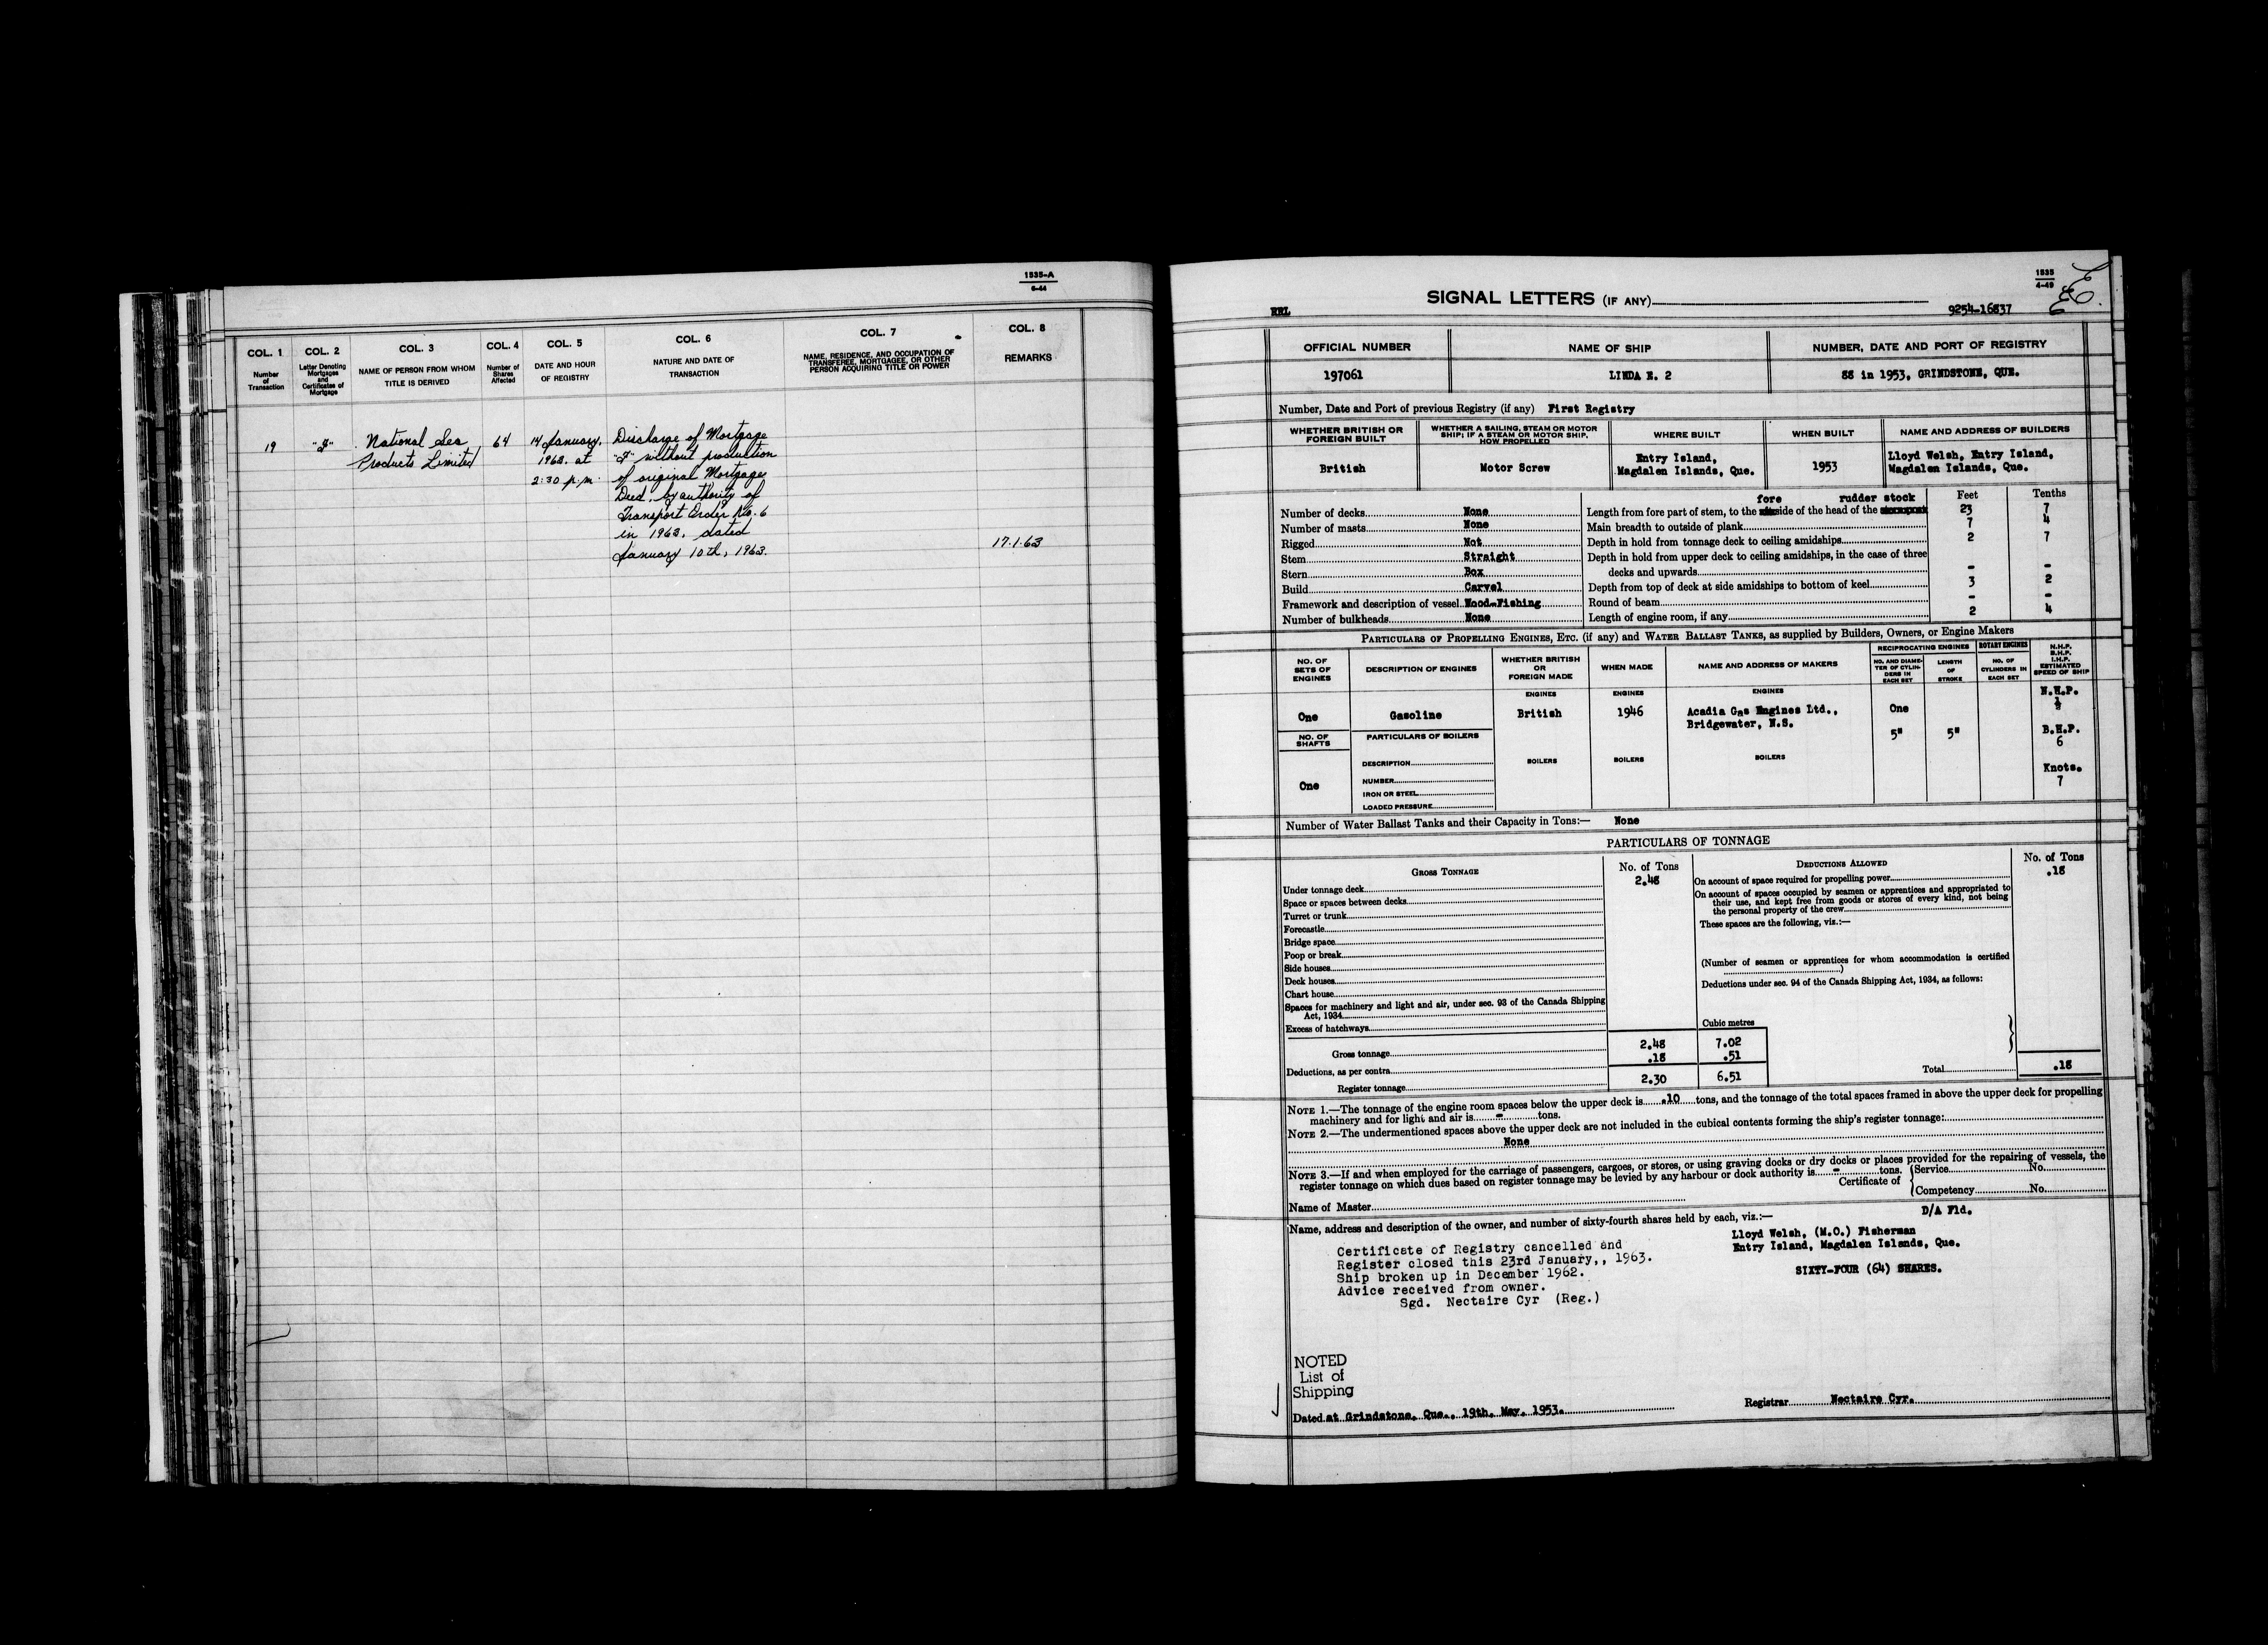 1535-A
6-44
COL. 1
Number
of
Transaction
COL. 2
Letter Denoting
Mortgages
and
Certificates of
Mortgage
COL. 3
NAME OF PERSON FROM WHOM
TITLE IS DERIVED
COL. 4
Number of
Shares
Affected
COL. 5
DATE AND HOUR
OF REGISTRY
COL. 6
NATURE AND DATE OF
TRANSACTION
COL. 7
NAME, RESIDENCE, AND OCCUPATION OF
TRANSFEREE, MORTGAGEE, OR OTHER
PERSON ACQUIRING TITLE OR POWER
COL. 8
REMARKS
19
National Sea
Products Limited
64
14 January,
1963. at
2:30 p.m.
Discharge of Mortgage
without production
of original Mortgage
Deed, by authority of
Transport Order No. 6
in 1963, dated
January 10th, 1963.
17.1.63
1535
4-49
RRL
SIGNAL LETTERS (IF ANY)
9254-16837
OFFICIAL NUMBER
NAME OF SHIP
NUMBER, DATE AND PORT OF REGISTRY
197061
LINDA E. 2
88 in 1953, GRINDSTONE, QUE.
Number, Date and Port of previous Registry (if any) First Registry
WHETHER BRITISH OR
FOREIGN BUILT
WHETHER A SAILING, STEAM OR MOTOR
SHIP; IF A STEAM OR MOTOR SHIP,
HOW PROPELLED
WHERE BUILT
WHEN BUILT
NAME AND ADDRESS OF BUILDERS
British
Motor Screw
Entry Island,
Magdalen Islands, Que.
1953
Lloyd Welsh, Entry Island,
Magdalen Islands, Que.
Number of decks None
Number of masts None
Rigged Not
Stem Straight
Stern Box
Build Carvel
Framework and description of vessel Wood-Fishing
Number of bulkheads None
Feet Tenths
fore rudder stock
Length from fore part of stem, to the side of the head of the 23 7
Main breadth to outside of plank 7 4
Depth in hold from tonnage deck to ceiling amidships 2 7
Depth in hold from upper deck to ceiling amidships, in the case of three
decks and upwards - -
Depth from top of deck at side amidships to bottom of keel 3 2
Round of beam - -
Length of engine room, if any 2 4
PARTICULARS OF PROPELLING ENGINES, ETC. (if any) and WATER BALLAST TANKS, as supplied by Builders, Owners, or Engine Makers
NO. OF
SETS OF
ENGINES
DESCRIPTION OF ENGINES
WHETHER BRITISH
OR
FOREIGN MADE
WHEN MADE
NAME AND ADDRESS OF MAKERS
RECIPROCATING ENGINES
NO. AND DIAME-
TER OF CYLIN-
DERS IN
EACH SET
LENGTH
OF
STROKE
ROTARY ENGINES
NO. OF
CYLINDERS IN
EACH SET
N.H.P.
B.H.P.
I.H.P.
ESTIMATED
SPEED OF SHIP
ENGINES
ENGINES
ENGINES
N.H.P.
One
Gasoline
British
1946
Acadia Gas Engines Ltd.,
Bridgewater, N.S.
One
5"
5"
B.H.P.
6
Knots.
7
NO. OF
SHAFTS
One
PARTICULARS OF BOILERS
DESCRIPTION
NUMBER
IRON OR STEEL
LOADED PRESSURE
BOILERS
BOILERS
BOILERS
Number of Water Ballast Tanks and their Capacity in Tons:— None
PARTICULARS OF TONNAGE
GROSS TONNAGE
No. of Tons
Under tonnage deck 2.48
Space or spaces between decks
Turret or trunk
Forecastle
Bridge space
Poop or break
Side houses
Deck houses
Chart house
Spaces for machinery and light and air, under sec. 93 of the Canada Shipping
Act, 1934
Excess of hatchways
Cubic metres
Gross tonnage 2.48 7.02
Deductions, as per contra .18 .51
Register tonnage 2.30 6.51
DEDUCTIONS ALLOWED
No. of Tons
On account of space required for propelling power .18
On account of spaces occupied by seamen or apprentices and appropriated to
their use, and kept free from goods or stores of every kind, not being
the personal property of the crew
These spaces are the following, viz.:—
(Number of seamen or apprentices for whom accommodation is certified
)
Deductions under sec. 94 of the Canada Shipping Act, 1934, as follows:
Total .18
NOTE 1.—The tonnage of the engine room spaces below the upper deck is .10 tons, and the tonnage of the total spaces framed in above the upper deck for propelling
machinery and for light and air is - tons.
NOTE 2.—The undermentioned spaces above the upper deck are not included in the cubical contents forming the ship's register tonnage:
None
NOTE 3.—If and when employed for the carriage of passengers, cargoes, or stores, or using graving docks or dry docks or places provided for the repairing of vessels, the
register tonnage on which dues based on register tonnage may be levied by any harbour or dock authority is - tons.
Certificate of
Service No.
Competency No.
Name of Master
Name, address and description of the owner, and number of sixty-fourth shares held by each, viz.:—
D/A Fld.
Lloyd Welsh, (M.O.) Fisherman
Entry Island, Magdalen Islands, Que.
SIXTY-FOUR (64) SHARES.
Certificate of Registry cancelled and
Register closed this 23rd January,, 1963.
Ship broken up in December 1962.
Advice received from owner.
Sgd. Nectaire Cyr (Reg.)
NOTED
List of
Shipping
Dated at Grindstone, Que., 19th. May, 1953.
Registrar Nectaire Cyr.